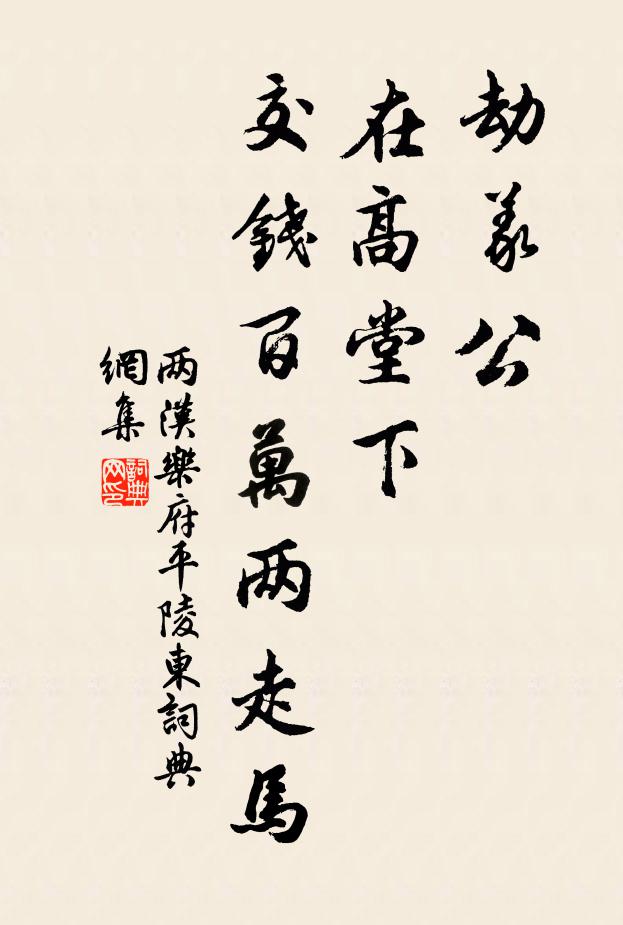 劫義公
在高堂下
交錢百萬两走馬
两漢樂府平陵東詞典
網集
詞典网印